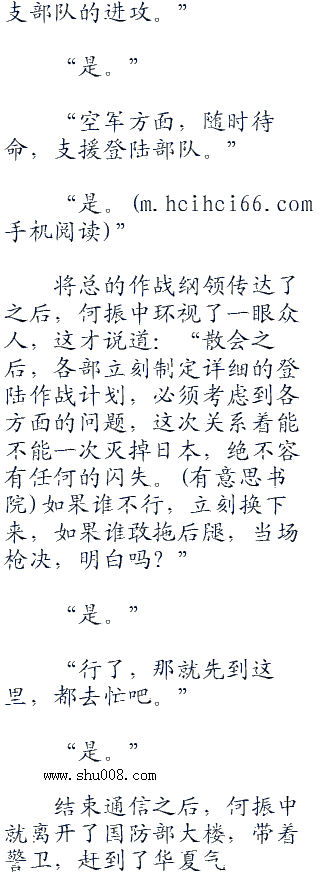 支部队的进攻。”
“是。”
“空军方面，随时待
命，支援登陆部队。”
“是。(m.hcihci66.com
手机阅读)”
将总的作战纲领传达了
之后，何振中环视了一眼众
人，这才说道：“散会之
后，各部立刻制定详细的登
陆作战计划，必须考虑到各
方面的问题，这次关系着能
不能一次灭掉日本，绝不容
有任何的闪失。(有意思书
院)如果谁不行，立刻换下
来，如果谁敢拖后腿，当场
枪决，明白吗？”
“是。”
“行了，那就先到这
里，都去忙吧。”
“是。”
www.shu008.com
结束通信之后，何振中
就离开了国防部大楼，带着
警卫，赶到了华夏气